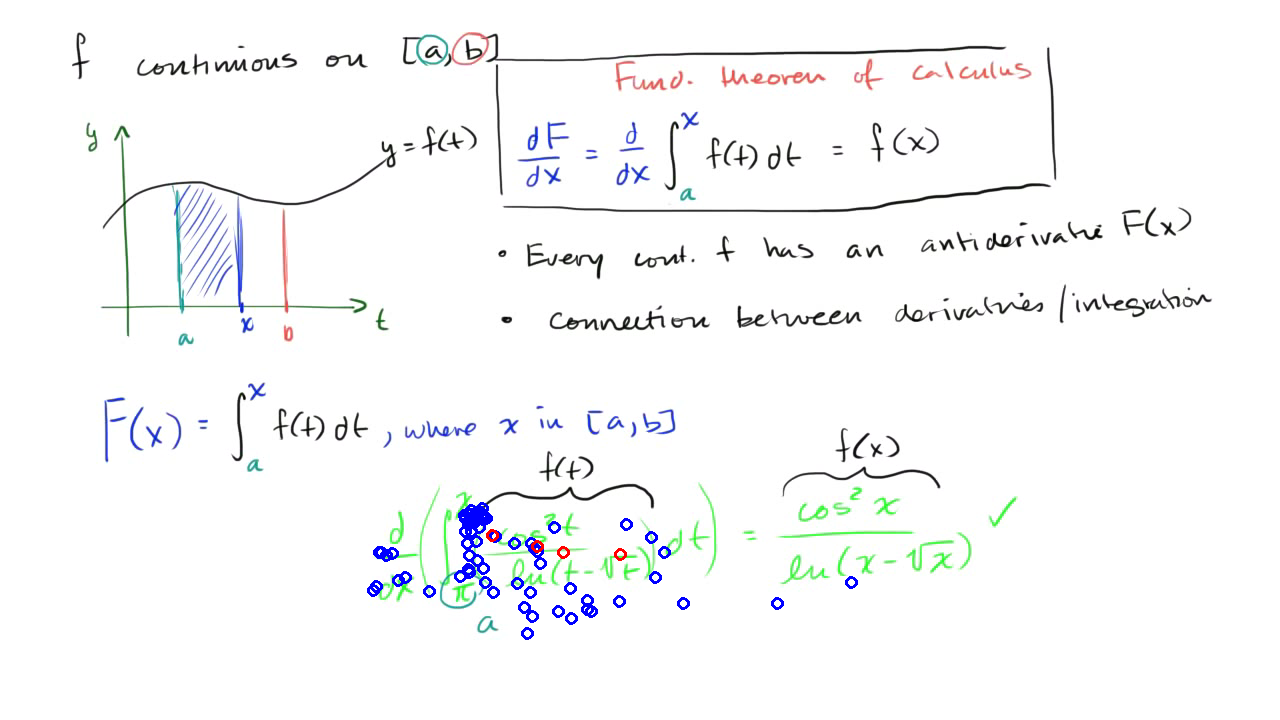 f continuous on [a, b]
Fund. theorem of calculus
dF/dx = d/dx ∫_a^x f(t) dt = f(x)
y
y = f(t)
a x b t
• Every cont. f has an antiderivative F(x)
• connection between derivatives / integration
F(x) = ∫_a^x f(t) dt , where x in [a, b]
f(t) f(x)
d/dx ( ∫_π^x cos² t / ln(t - √t) dt ) = cos² x / ln(x - √x) ✓
a